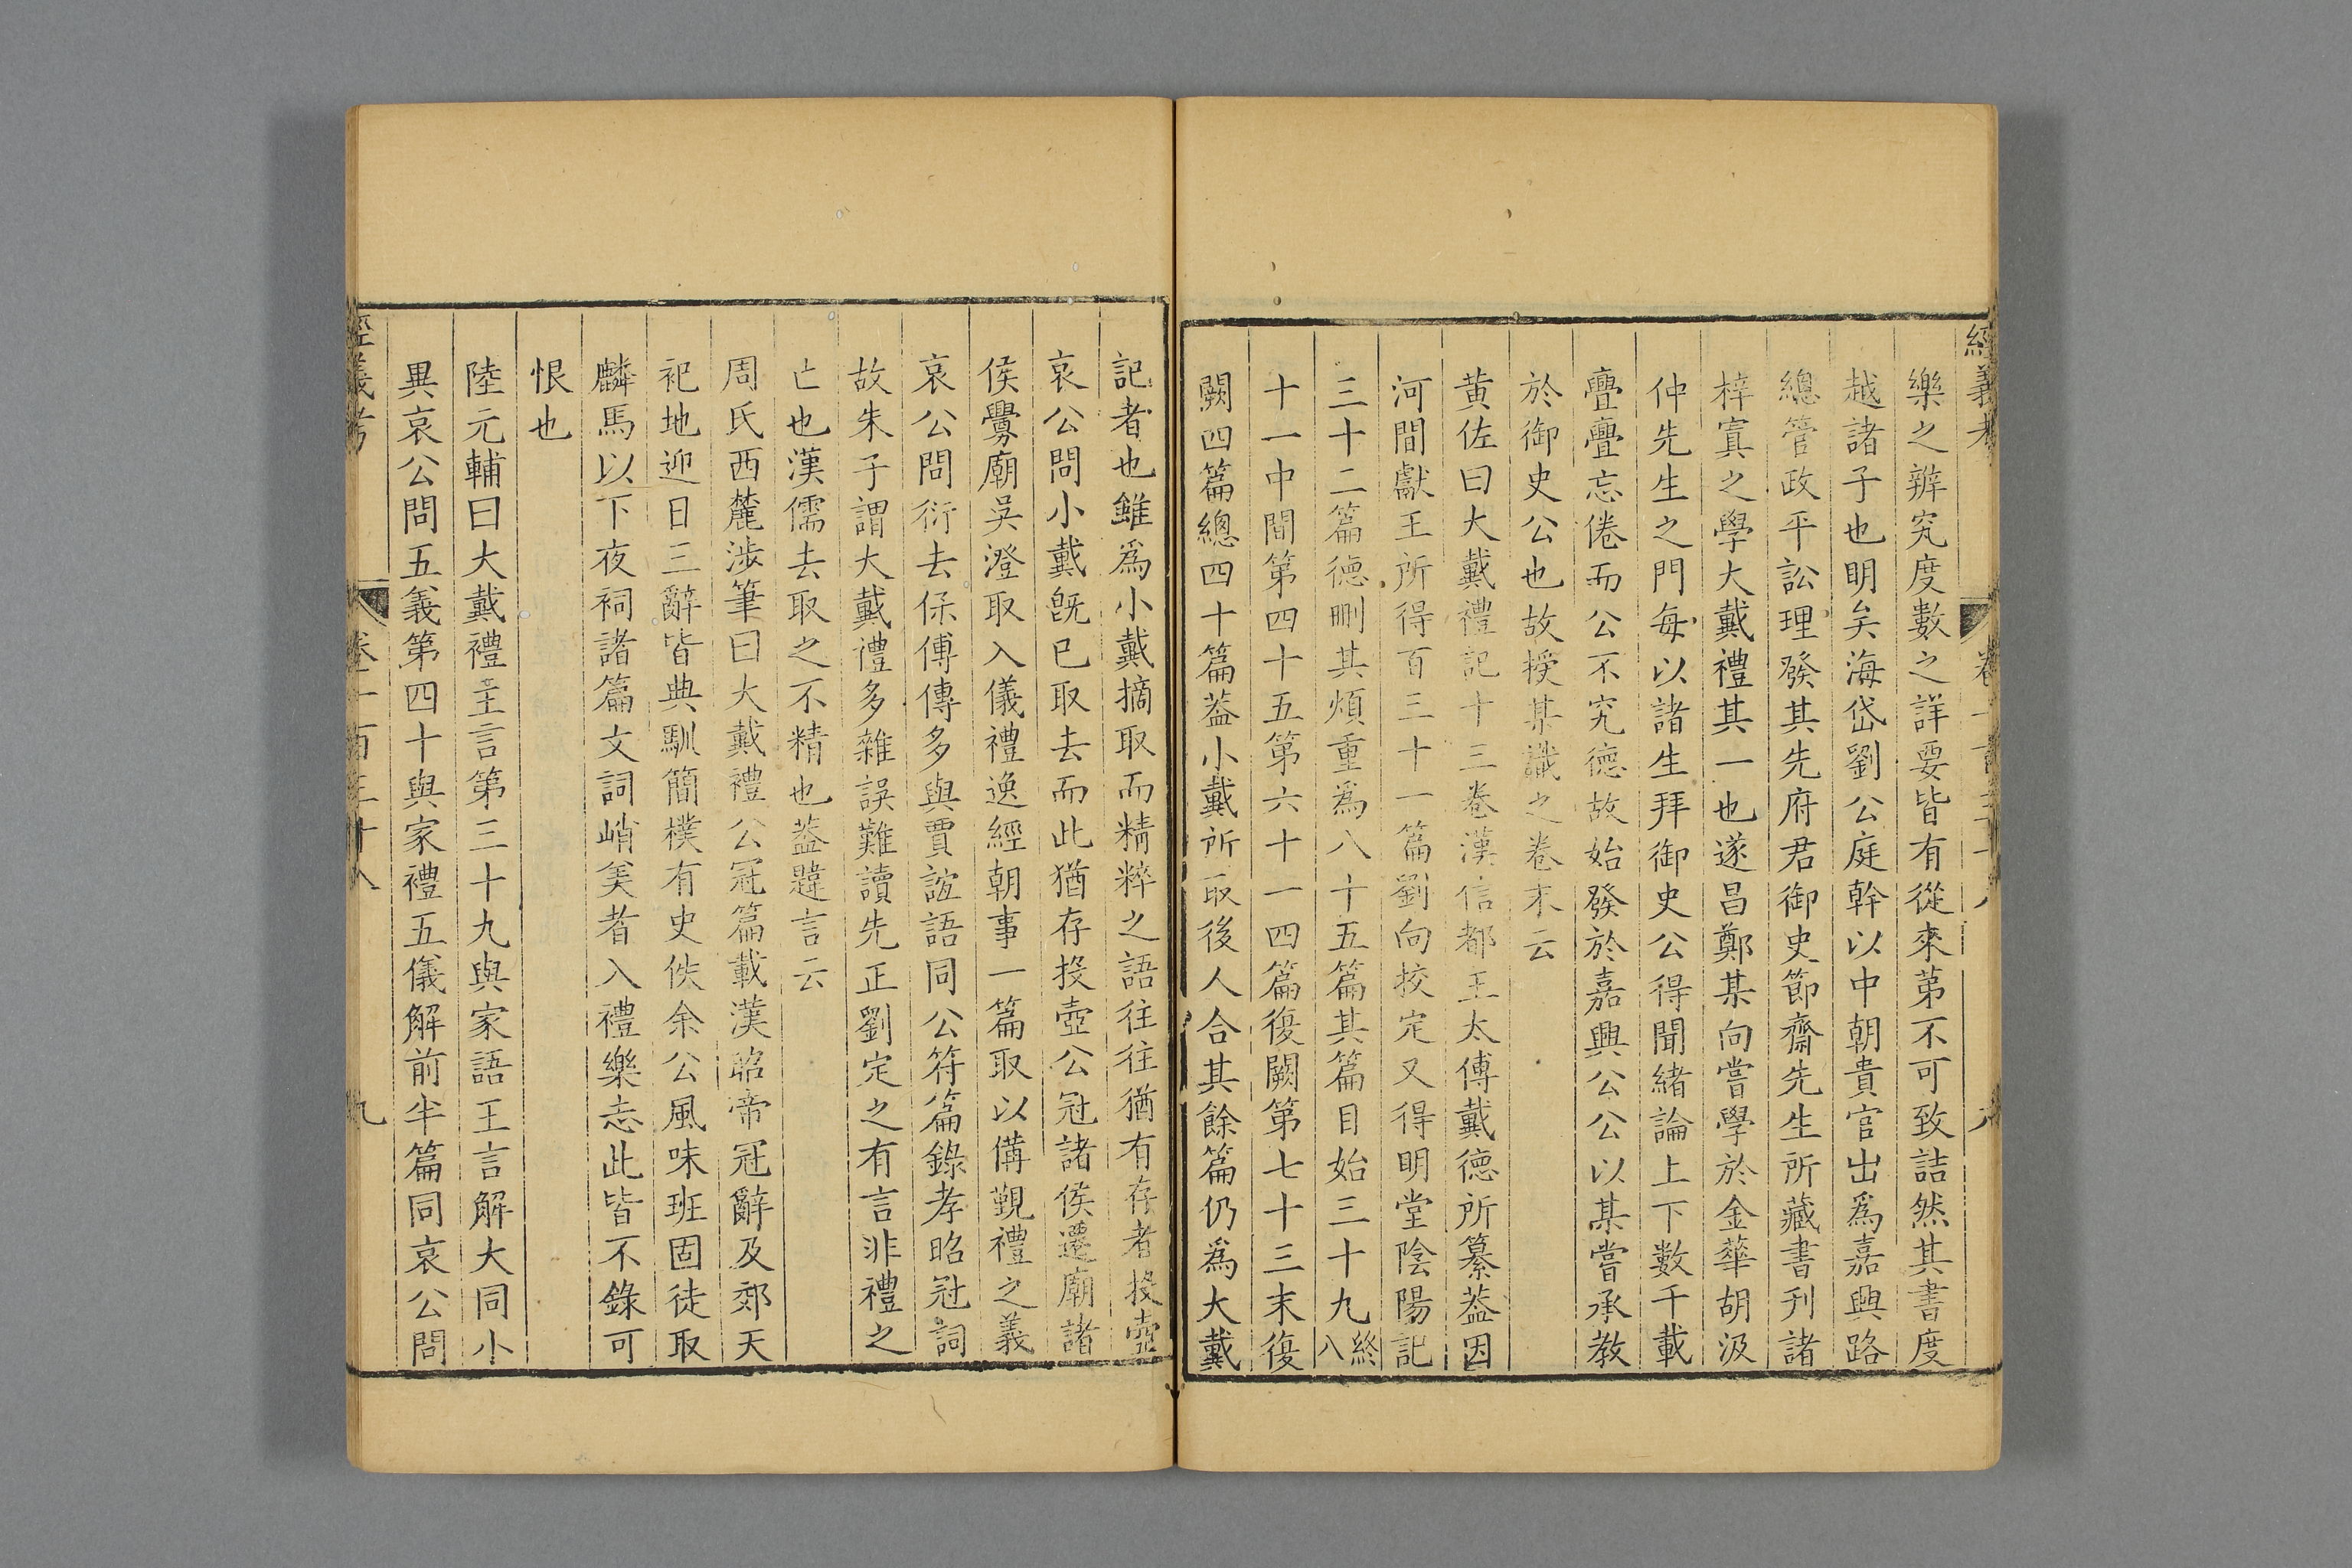 經義考 卷一百三十八 八
樂之辨究度數之詳要皆有從來苐不可致詰然其書度
越諸子也明矣海岱劉公庭幹以中朝貴官出爲嘉興路
總管政平訟理發其先府君御史節齋先生所藏書刋諸
梓寘之學大戴禮其一也遂昌鄭某向嘗學於金華胡汲
仲先生之門每以諸生拜御史公得聞緒論上下數千載
亹亹忘倦而公不究德故始發於嘉興公公以某嘗承教
於御史公也故授某識之卷末云
黄佐曰大戴禮記十三卷漢信都王太傅戴德所纂葢因
河間獻王所得百三十一篇劉向挍定又得明堂陰陽記
三十二篇德刪其煩重爲八十五篇其篇目始三十九終八
十一中間第四十五第六十一四篇復闕第七十三末復
闕四篇總四十篇葢小戴所取後人合其餘篇仍爲大戴
記者也雖爲小戴摘取而精粹之語往往猶有存者投壺
哀公問小戴旣已取去而此猶存投壺公冠諸侯遷廟諸
侯釁廟吳澄取入儀禮逸經朝事一篇取以備覲禮之義
哀公問衍去保傅傳多與賈誼語同公符篇錄孝昭冠詞
故朱子謂大戴禮多雜誤難讀先正劉定之有言非禮之
亡也漢儒去取之不精也葢韙言云
周氏西麓涉筆曰大戴禮公冠篇載漢昭帝冠辭及郊天
祀地迎日三辭皆典馴簡樸有史佚余公風味班固徒取
麟馬以下夜祠諸篇文詞峭美者入禮樂志此皆不錄可
恨也
陸元輔曰大戴禮主言第三十九與家語王言解大同小
異哀公問五義第四十與家禮五儀解前半篇同哀公問
經義考 卷一百三十八 九